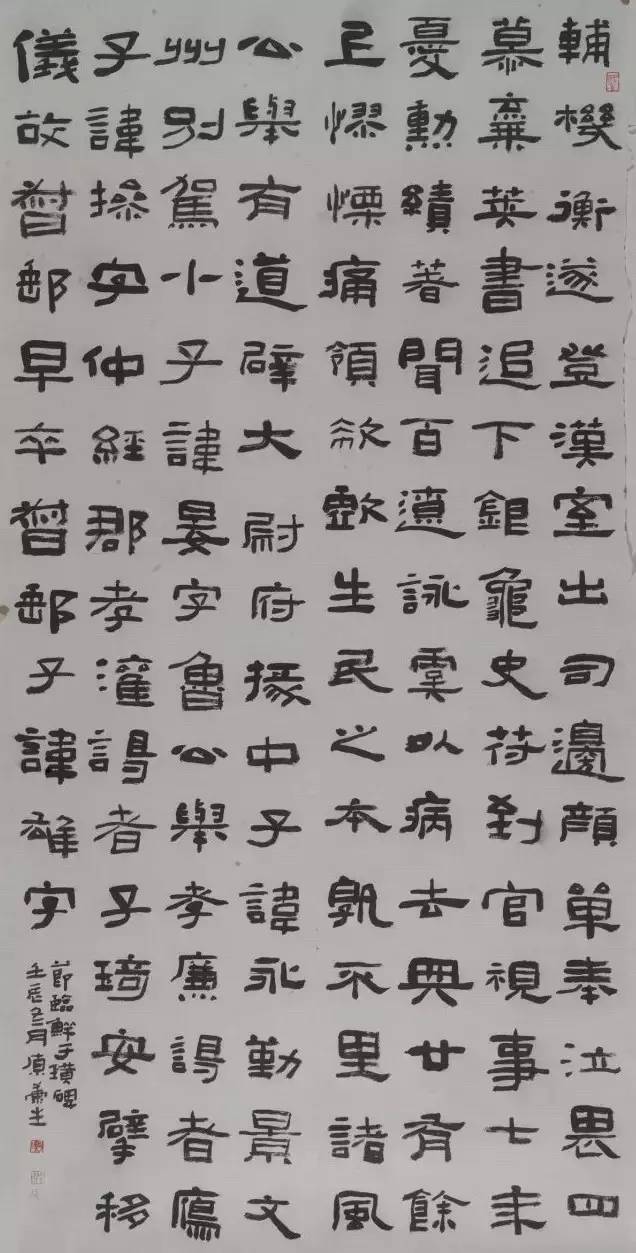 輔機衡遂登漢室出司邊顔單奉泣畏四
慕棄英書追下銀龜史符到官視事七年
憂勳績著聞百遼詠虞以病去興廿有餘
憀慄痛領欷歔生民之本孰不里諸風
公舉有道辟大尉府掾中子諱永勤景文
州別駕小子諱晏字魯公舉孝廉謁者鴈
子諱操字仲經郡孝灌謁者子琦安辟移
儀故督郵早卒督郵子諱雄字
節臨鮮于璜碑
壬辰五月